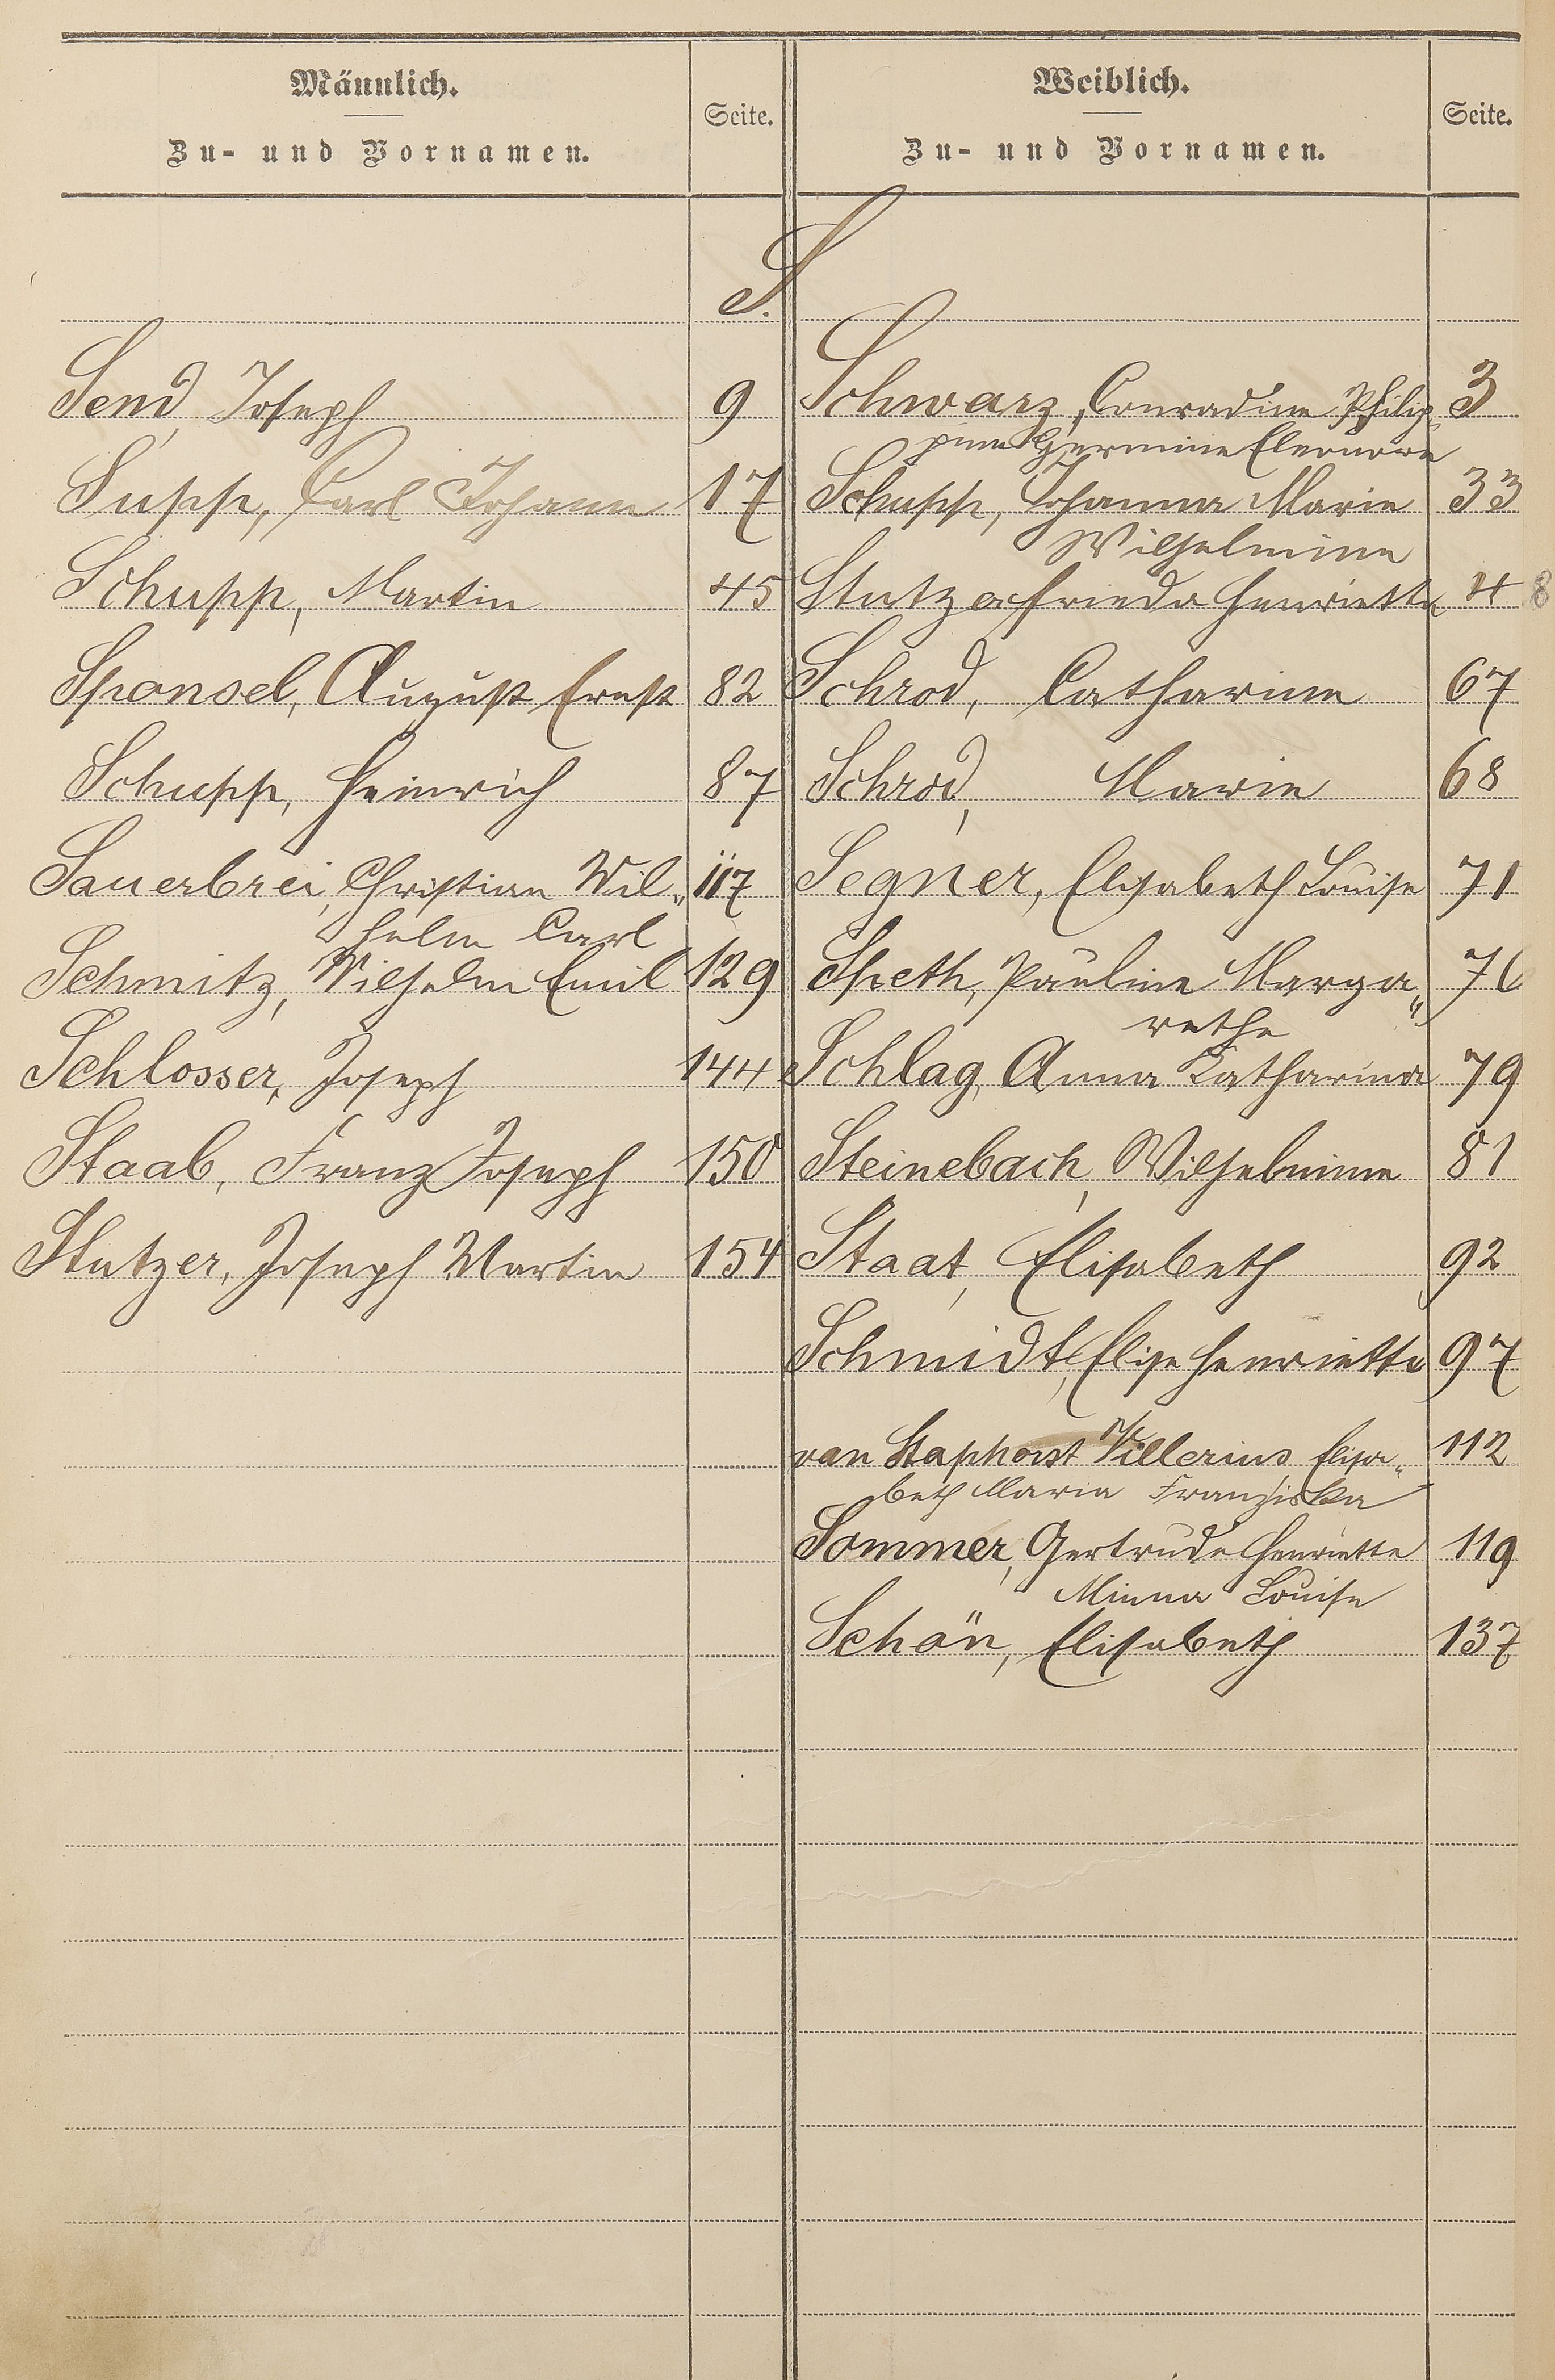 Männlich.
Zu- und Vornamen.
Seite.
Weiblich.
Zu- und Vornamen.
Seite.
S.
Send, Joseph 9
Supp, Carl Johann 17
Schupp, Martin 45
Sponsel, August Ernst 82
Schupp, Heinrich 87
Sauerbrei, Christian Wil- 117
helm Carl
Schmitz, Wilhelm Emil 129
Schlosser, Joseph 144
Staab, Franz Joseph 150
Stutzer, Joseph Martin 154
Schwarz, Conradine Philip- 3
pine Hermine Eleonore
Schupp, Johanna Marie 33
Wilhelmine
Stutzer Frieda Henriette 48
Schrod, Catharine 67
Schrod, Marie 68
Segner, Elisabeth Louise 71
Speth, Pauline Marga- 76
rethe
Schlag, Anna Katharina 79
Steinebach, Wilhelmine 81
Staat, Elisabeth 92
Schmidt, Elise Henriette 97
van Staphorst Villerius Elisa- 112
beth Maria Franziska
Sommer, Gertrude Henriette 119
Minna Louise
Schön, Elisabeth 137